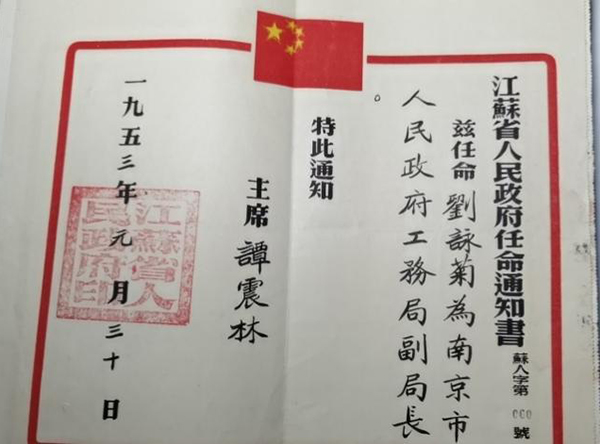 江蘇省人民政府任命通知書
蘇人字第 號
兹任命劉詠菊為南京市
人民政府工務局副局長
。
特此通知
主席 譚震林
一九五三年元月三十日
江蘇省人民政府印